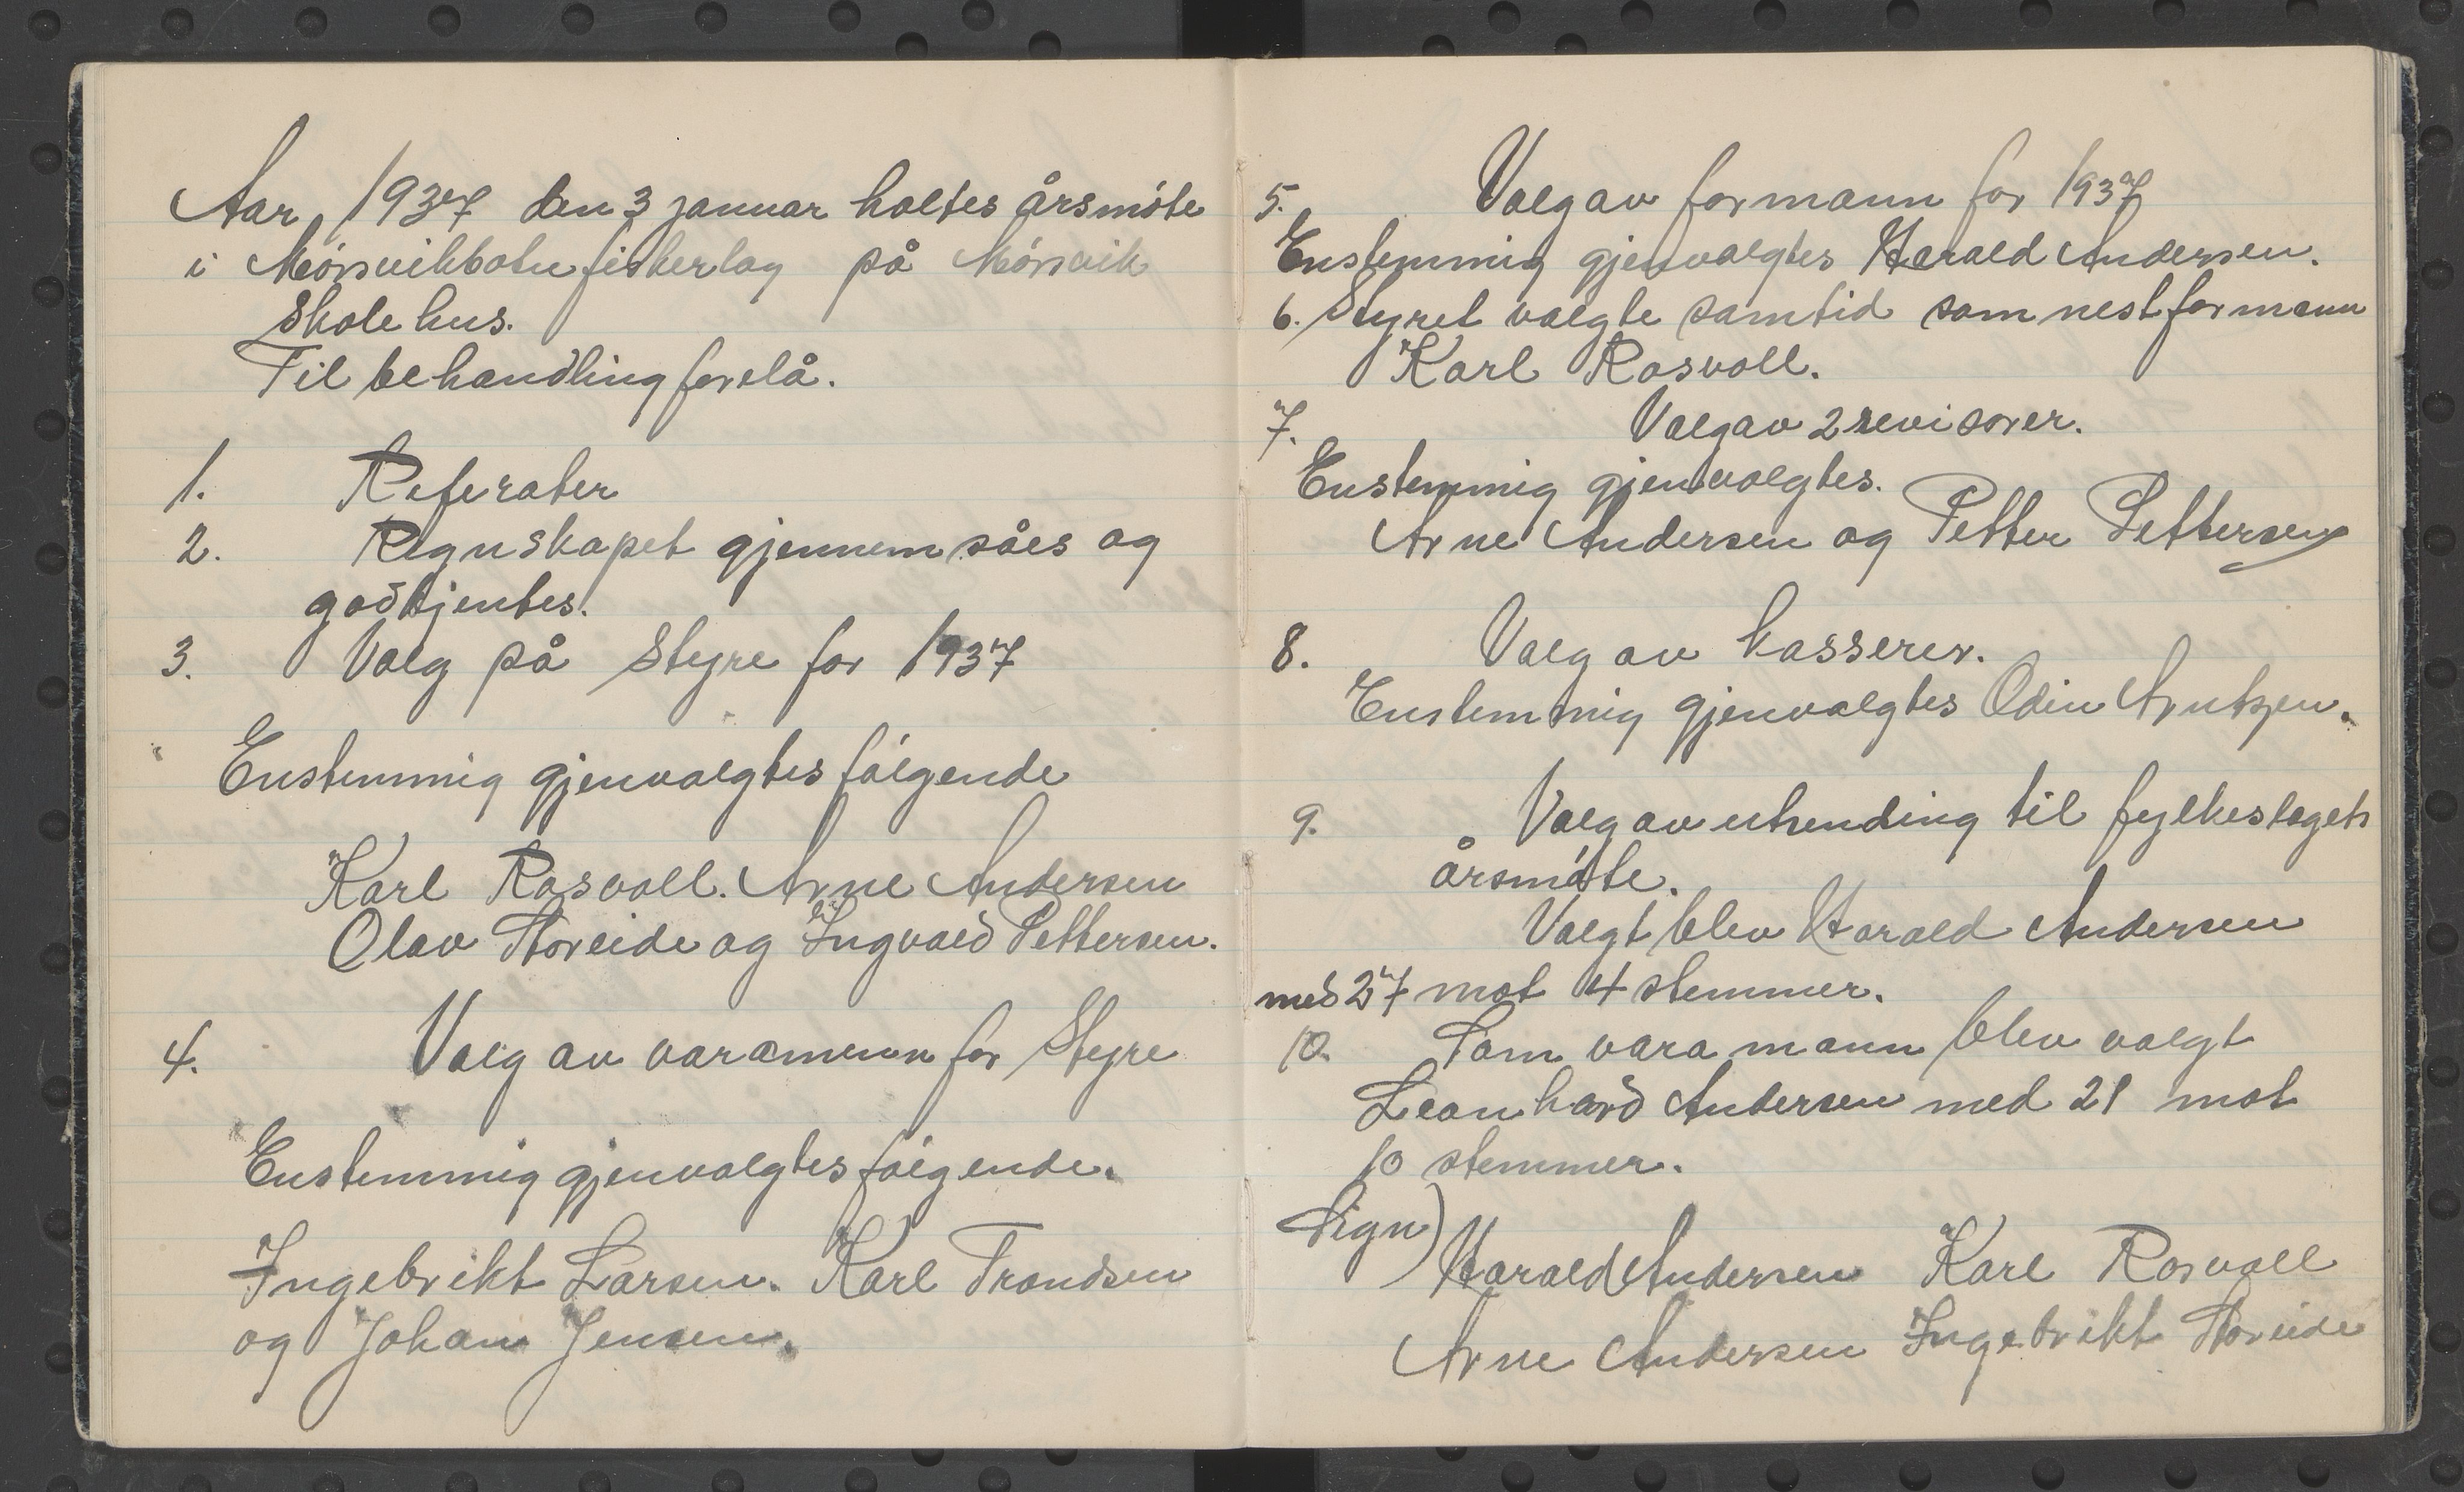 Aar, 1937 den 3 januar holtes årsmöte
i Mörsvikbotn fiskerlag på Mörsvik
Skolehus.
Til behandling forelå.
1. Referater
2. Regnskapet gjennemsåes og
godkjentes.
3. Valg på Styre for 1937
Enstemmig gjenvalgtes fölgende
Karl Rosvoll. Arne Andersen
Olav Storeide og Ingvald Pettersen.
4. Valg av varamenn for Styre
Enstemmig gjenvalgtes fölgende.
Ingebrikt Larsen. Karl Trondsen
og Johan Jensen.
5. Valg av formann for 1937
Enstemmig gjenvalgtes Harald Andersen.
6. Styret valgte samtid som nestformann
Karl Rosvoll.
7. Valg av 2 revisorer.
Enstemmig gjenvalgtes.
Arne Andersen og Petter Pettersen
8. Valg av kasserer.
Enstemmig gjenvalgtes Odin Arntzen.
9. Valg av utsending til fylkeslagets
årsmöte.
Valgt blev Harald Andersen
med 27 mot 4 stemmer.
10. Som varamann blev valgt
Leonhard Andersen med 21 mot
10 stemmer.
Sign)
Harald Andersen Karl Rosvoll
Arne Andersen Ingebrikt Storeide